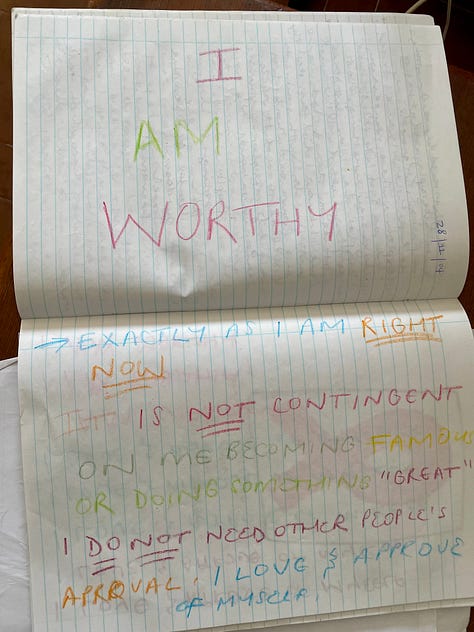 I
AM
WORTHY
→ EXACTLY AS I AM RIGHT
NOW
IT IS NOT CONTINGENT
ON ME BECOMING FAMOUS
OR DOING SOMETHING "GREAT"
I DO NOT NEED OTHER PEOPLE'S
APROVAL. I LOVE & APPROVE
OF MYSELF.